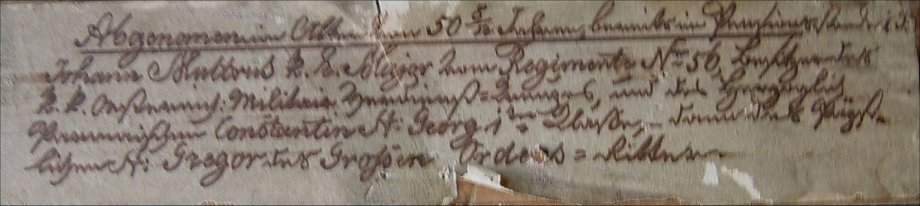 Abgenomen im Alter von 50 5/12 Jahren, bereits im Pensionsstande i.
Johann k. k. Major vom Regimente No 56, Besitzer des
k. k. Österreich: Militair Verdienst=Kreuzes, und des Herzoglich
Parmaischen Constantin St: Georg 1ter Classe, dann des Päpst=
lichen St: Gregor des Großen Ordens=Ritter.